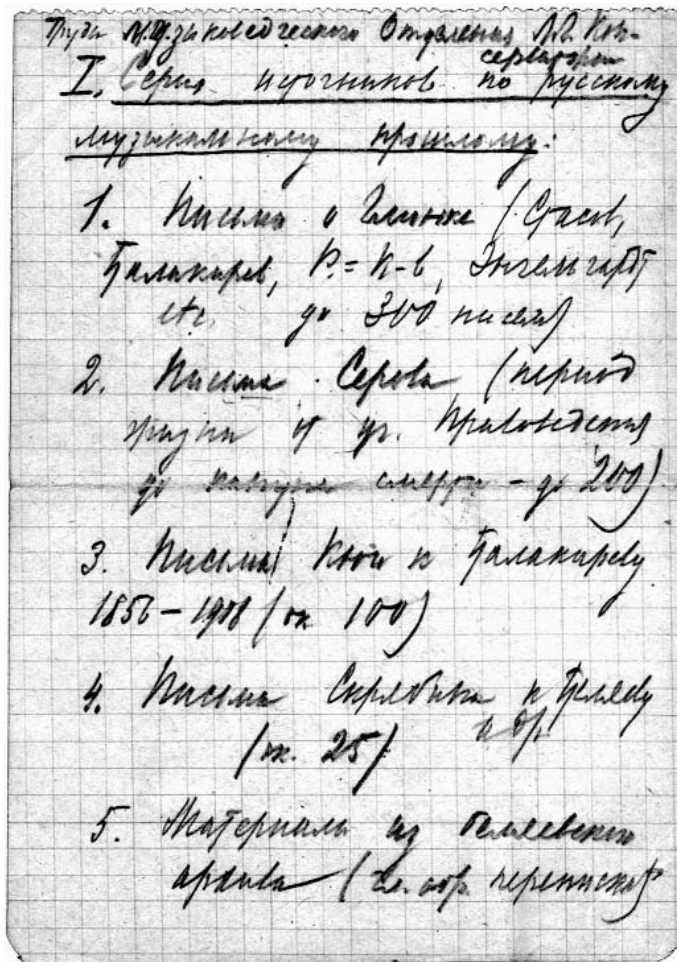 Труды Музыковедческого Отделения Л.Г. Кон-
серватории
I. Серия источников по русскому
музыкальному прошлому:
1. Письма о Глинке (Стасов,
Балакирев, Р.=К-в, Энгельгардт
etc. до 300 писем)
2. Письма Серова (период
жизни от уч. Правоведения
до кануна смерти – до 200)
3. Письма Кюи к Балакиреву
1856–1908 (ок 100)
4. Письма Скрябина к Беляеву
и др.
(ок. 25)
5. Материалы из беляевского
архива (гл. обр. переписка)